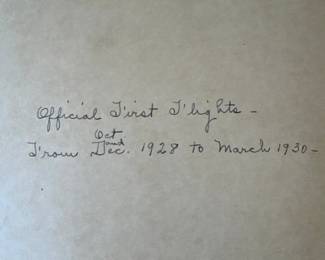 Official First Flights -
Oct
and
From Dec. 1928 to March 1930 -